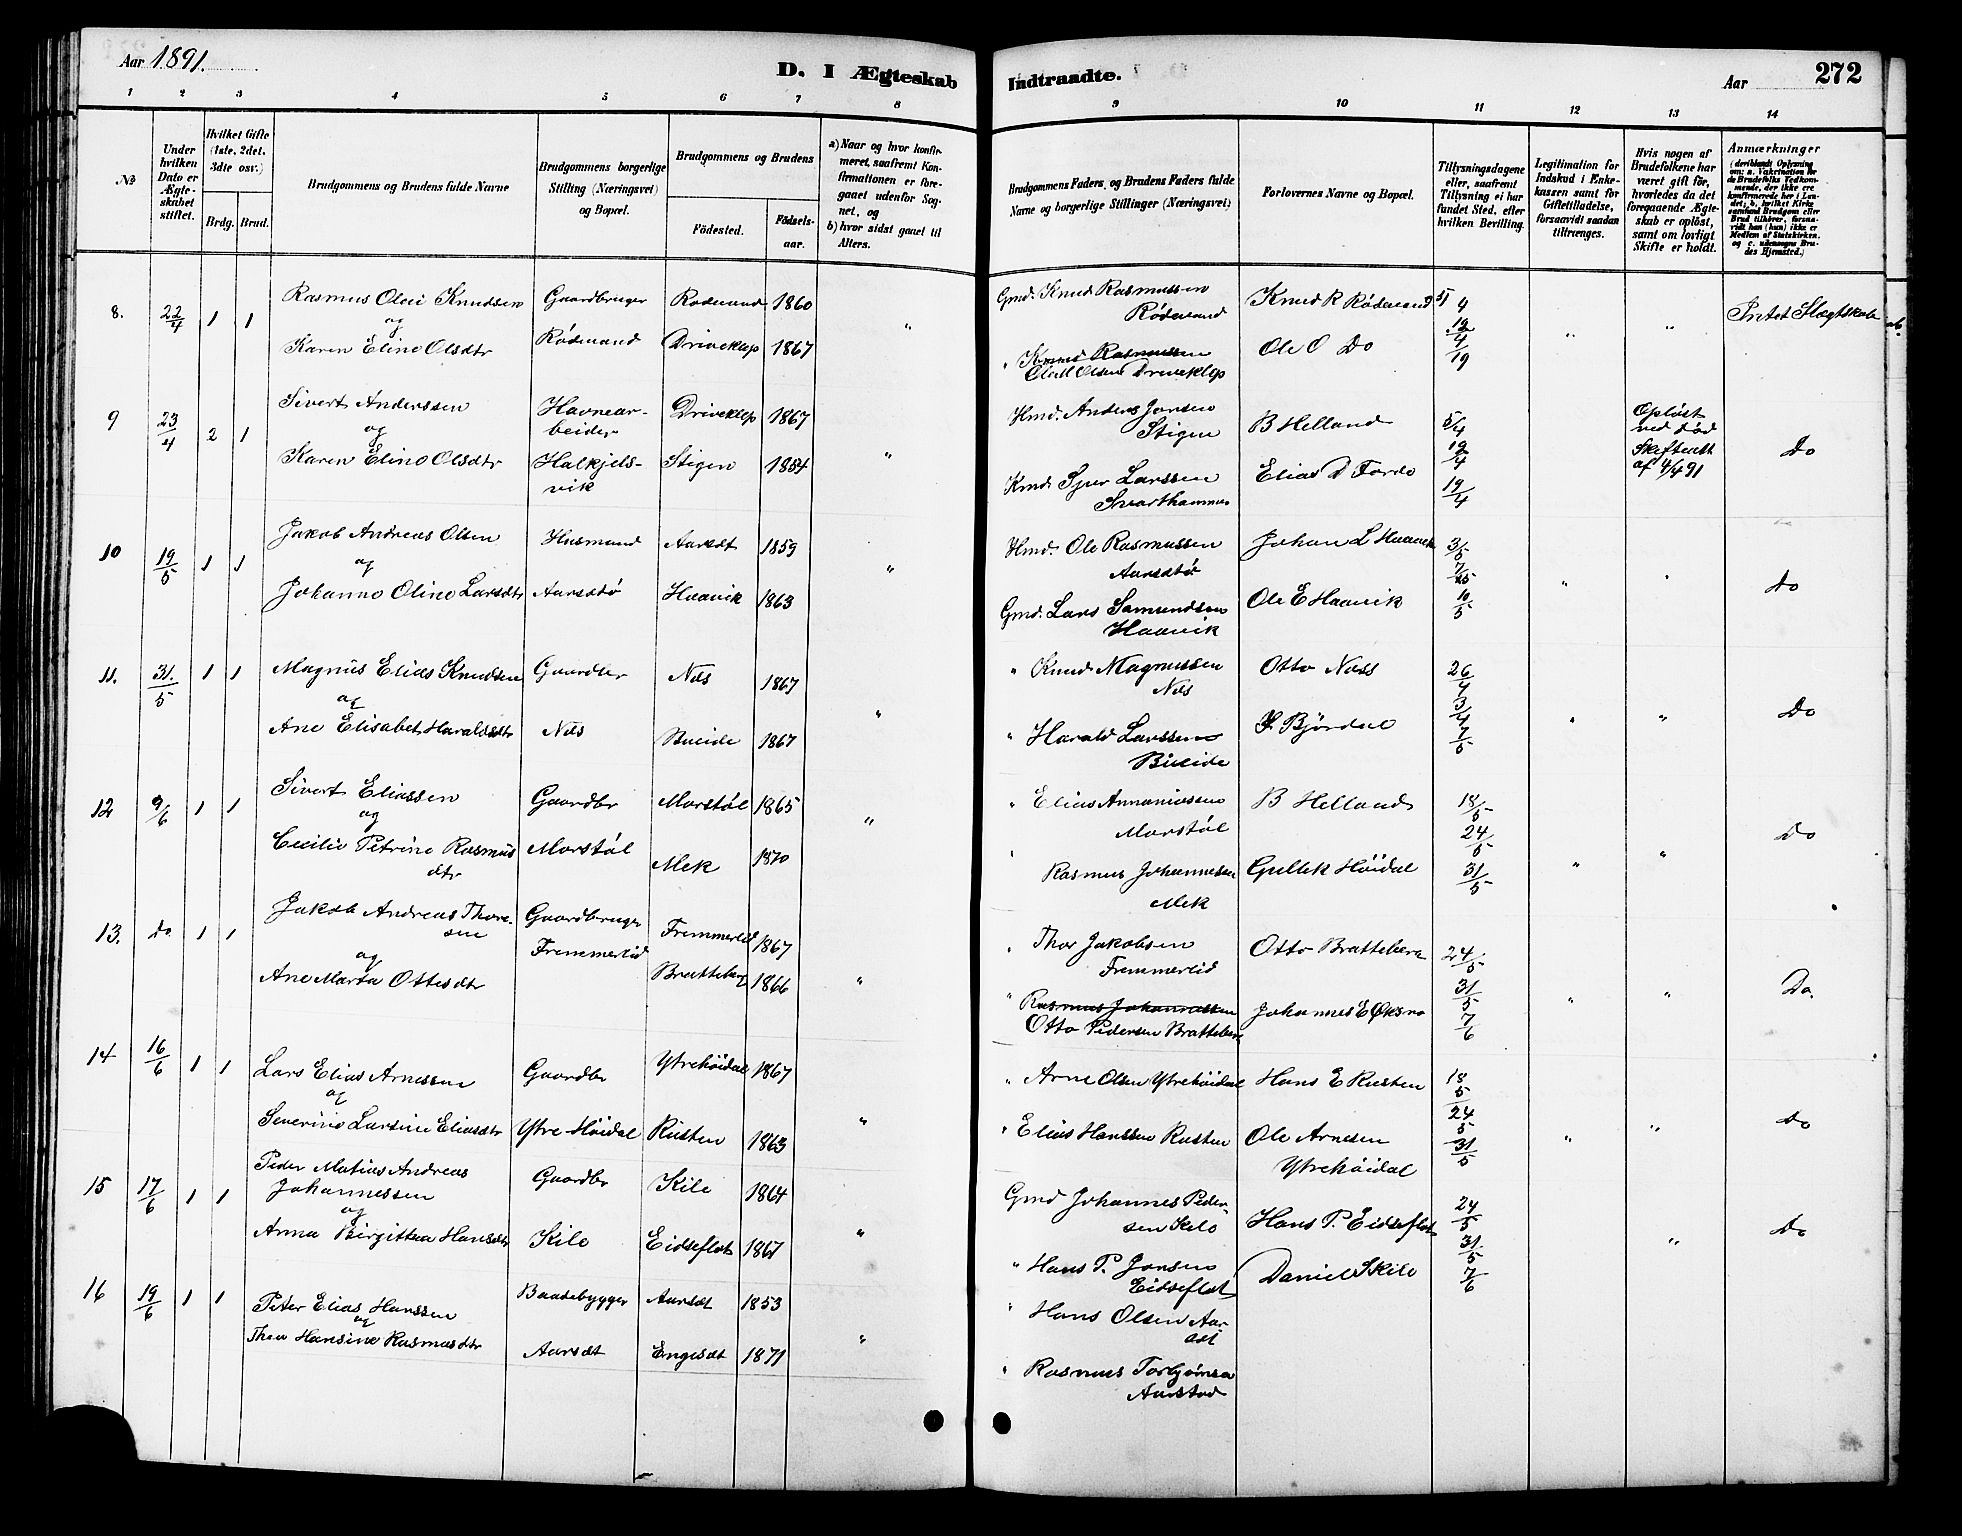 Aar 1891.
D. I Ægteskab
Indtraadte.
Aar
272
1 2 3 4 5 6 7 8 9 10 11 12 13 14
№
Under hvilken Dato er Ægteskabet stiftet.
Hvilket Gifte (1ste, 2det, 3dte osv.)
Brdg. Brud.
Brudgommens og Brudens fulde Navne
Brudgommens borgerlige Stilling (Næringsvei) og Bopæl.
Brudgommens og Brudens
Födested.
Födselsaar.
a) Naar og hvor konfirmeret, saafremt Konfirmationen er foregaaet udenfor Sognet, og
b) hvor sidst gaaet til Alters.
Brudgommens Faders, og Brudens Faders fulde Navne og borgerlige Stillinger (Næringsvei)
Forlovernes Navne og Bopæl.
Tillysningsdagene eller, saafremt Tillysning ei har fundet Sted, efter hvilken Bevilling.
Legitimation for Indskud i Enkekassen samt for Giftetilladelse, forsaavidt saadan tiltrænges.
Hvis nogen af Brudefolkene har været gift för, hvorledes da det foregaaende Ægteskab er oplöst, samt om lovligt Skifte er holdt.
Anmærkninger
(deriblandt Oplysning om: a. Vakcination for de Brudefolks Vedkommende, der ikke ere konfirmerede her i Landet; b. hvilket Kirkesamfund Brudgom eller Brud tilhörer, forsaavidt han (hun) ikke er Medlem af Statskirken, og c. udensogns Brudes Hjemsted.)
8. 22/4 1 1 Rasmus Olai Knudsen Gaardbruger Rødesand 1860 " Gmd. Knud Rasmussen Knud R Rødesand 5/4 " " Intet Slægtskab
og Rødesand
Karen Eline Olsdtr Rødesand Driveklep 1867 " Knud Rasmussen Ole O Do 12/4
Olsen Driveklep 19
9 23/4 2 1 Sivert Anderssen Havnear- Driveklep 1867 " Hmd. Anders Jonsen B Helland 5/4 Opløst
og beider Stigen ved død
Karen Eline Olsdtr Halkjels- Stigen 1854 Elias D Førde 12/4 Skifteatt Do
vik Kmd. Sjur Larssen 19/4 af 4/4 91
Svarthammer
10 19/5 1 1 Jakob Andreas Olsen Husmand Aarsdt 1859 " Hmd. Ole Rasmussen Johan L Haavik 3/5 " " Do
og Aarsdtø 7/5
Johanne Oline Larsdtr Aarsdtø Haavik 1863 Gmd. Lars Samundsen Ole E Haavik 10/5
Haavik
11. 31./5 1 1 Magnus Elias Knudsen Gaardbr Næs 1867 " " Knud Magnussen Otto Næss 26/4 " " Do
og Næs 3/4
Ane Elisabet Haraldsdtr Næs Bueide 1867 " Harald Larssen Bjørdal 7/5
Bueide
12 9/6 1 1 Sivert Eliassen Gaardbr Morstøl 1865 " " Elias Annaniassen B Helland 18/5 " " Do
og Morstøl 24/5
Cecilie Petrine Rasmus Morstøl Mek 1870 " Rasmus Johannesen Gullek Høidal 31/5
dtr Mek
13. Do. 1 1 Jakob Andreas Thore- Gaardbruger Fremmerlid 1867 " " Thor Jakobsen Otto Bratteberg 24/5 " " Do.
sen Fremmerlid Fremmerlid
og 31/5
Ane Marta Ottesdtr Bratteberg 1866 " Rasmus Johannessen Johannes E Øksno 7/6
Otto Pedersen Bratteberg
14 16/6 1 1 Lars Elias Arnessen Gaardbr Ytrehöidal 1867 " " Arne Olsen Ytrehöidal Hans E Rusten 18/5 " " Do
og 24/5
Severine Larsine Eliasdtr Ytre Höidal Risten 1863 " Elias Hanssen Rusten Ole Arnesen 31/5
Ytrehöidal
15 17/6 1 1 Peder Matias Andreas Gaardbr Kile 1864 " Gmd Johannes Peder- Hans P. Eidseflot 24/5 " Do
Johannessen sen Kile
og 31/5
Anna Birgittea Hansdtr Kile Eidseflot 1867 " Hans P. Jonsen Daniel S Kile 7/6
Eidseflot
16 19/6 1 1 Peter Elias Hanssen Baadebygger Aarsdt 1853 " " Hans Olsen Aar-
og ødt
Thea Hansine Rasmusdtr Aarsdt Engesdt 1871 " Rasmus Torbjørnsen
Aarstad